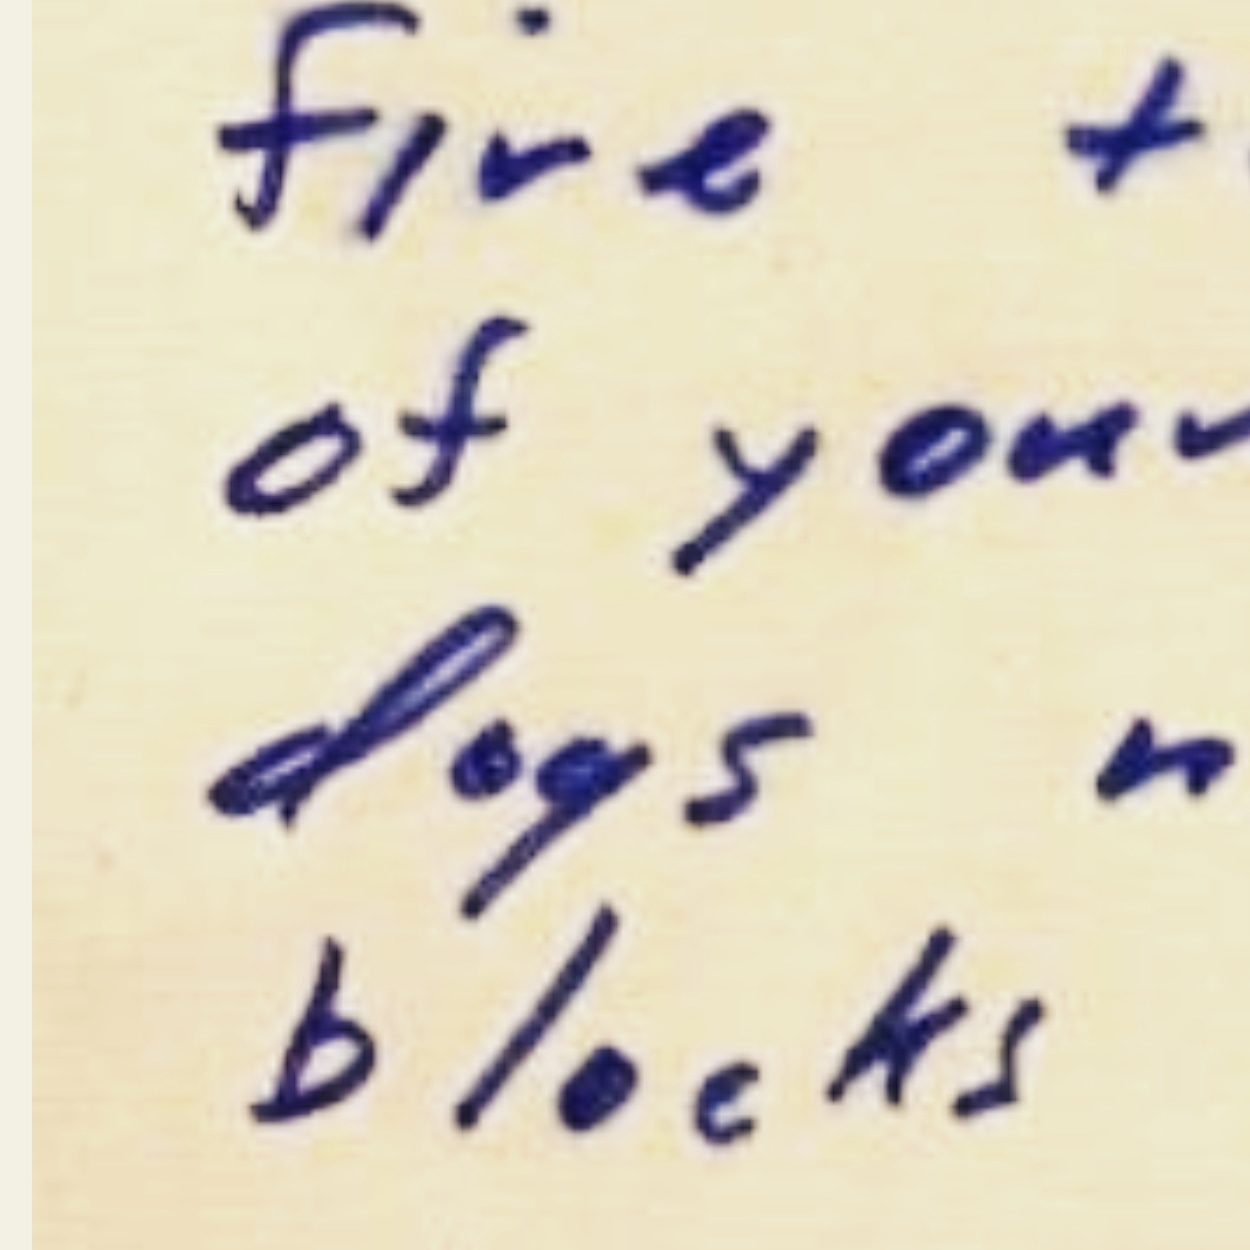 five t
of your
dogs n
blocks